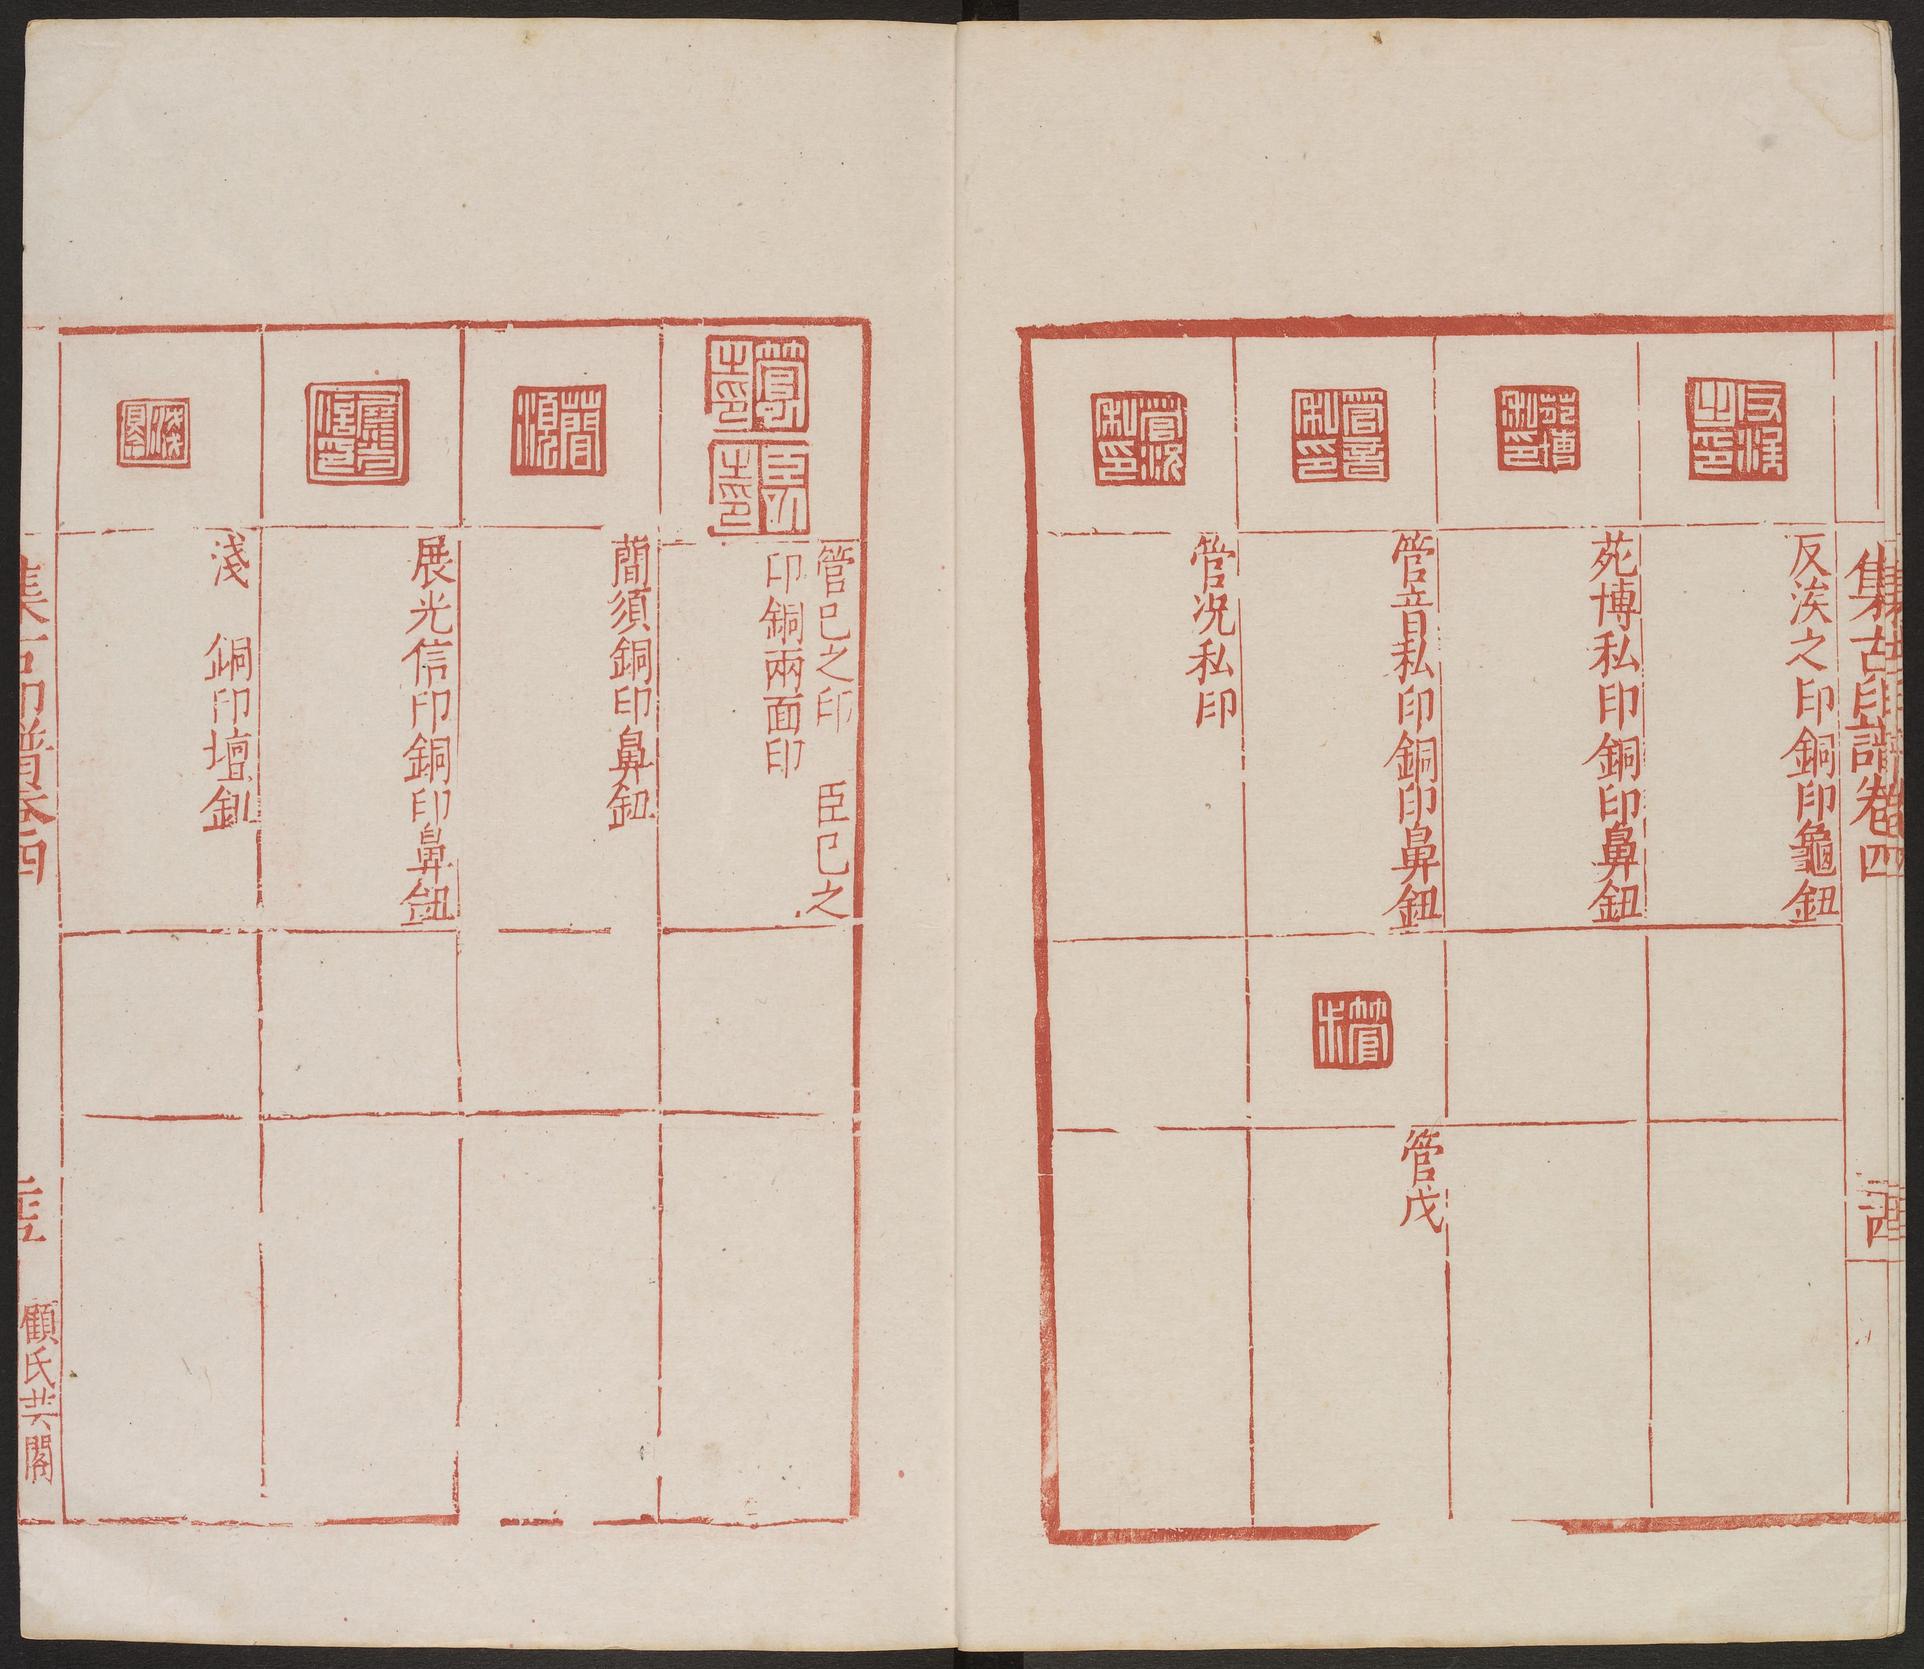 集古印譜卷四
反涘之印銅印龜鈕
苑博私印銅印鼻鈕
管音私印銅印鼻鈕
管戊
管况私印
管巳之印 臣巳之
印銅兩面印
蕳須銅印鼻鈕
展光信印銅印鼻鈕
淺 銅印壇鈕
集古印譜卷四
顧氏芸閣